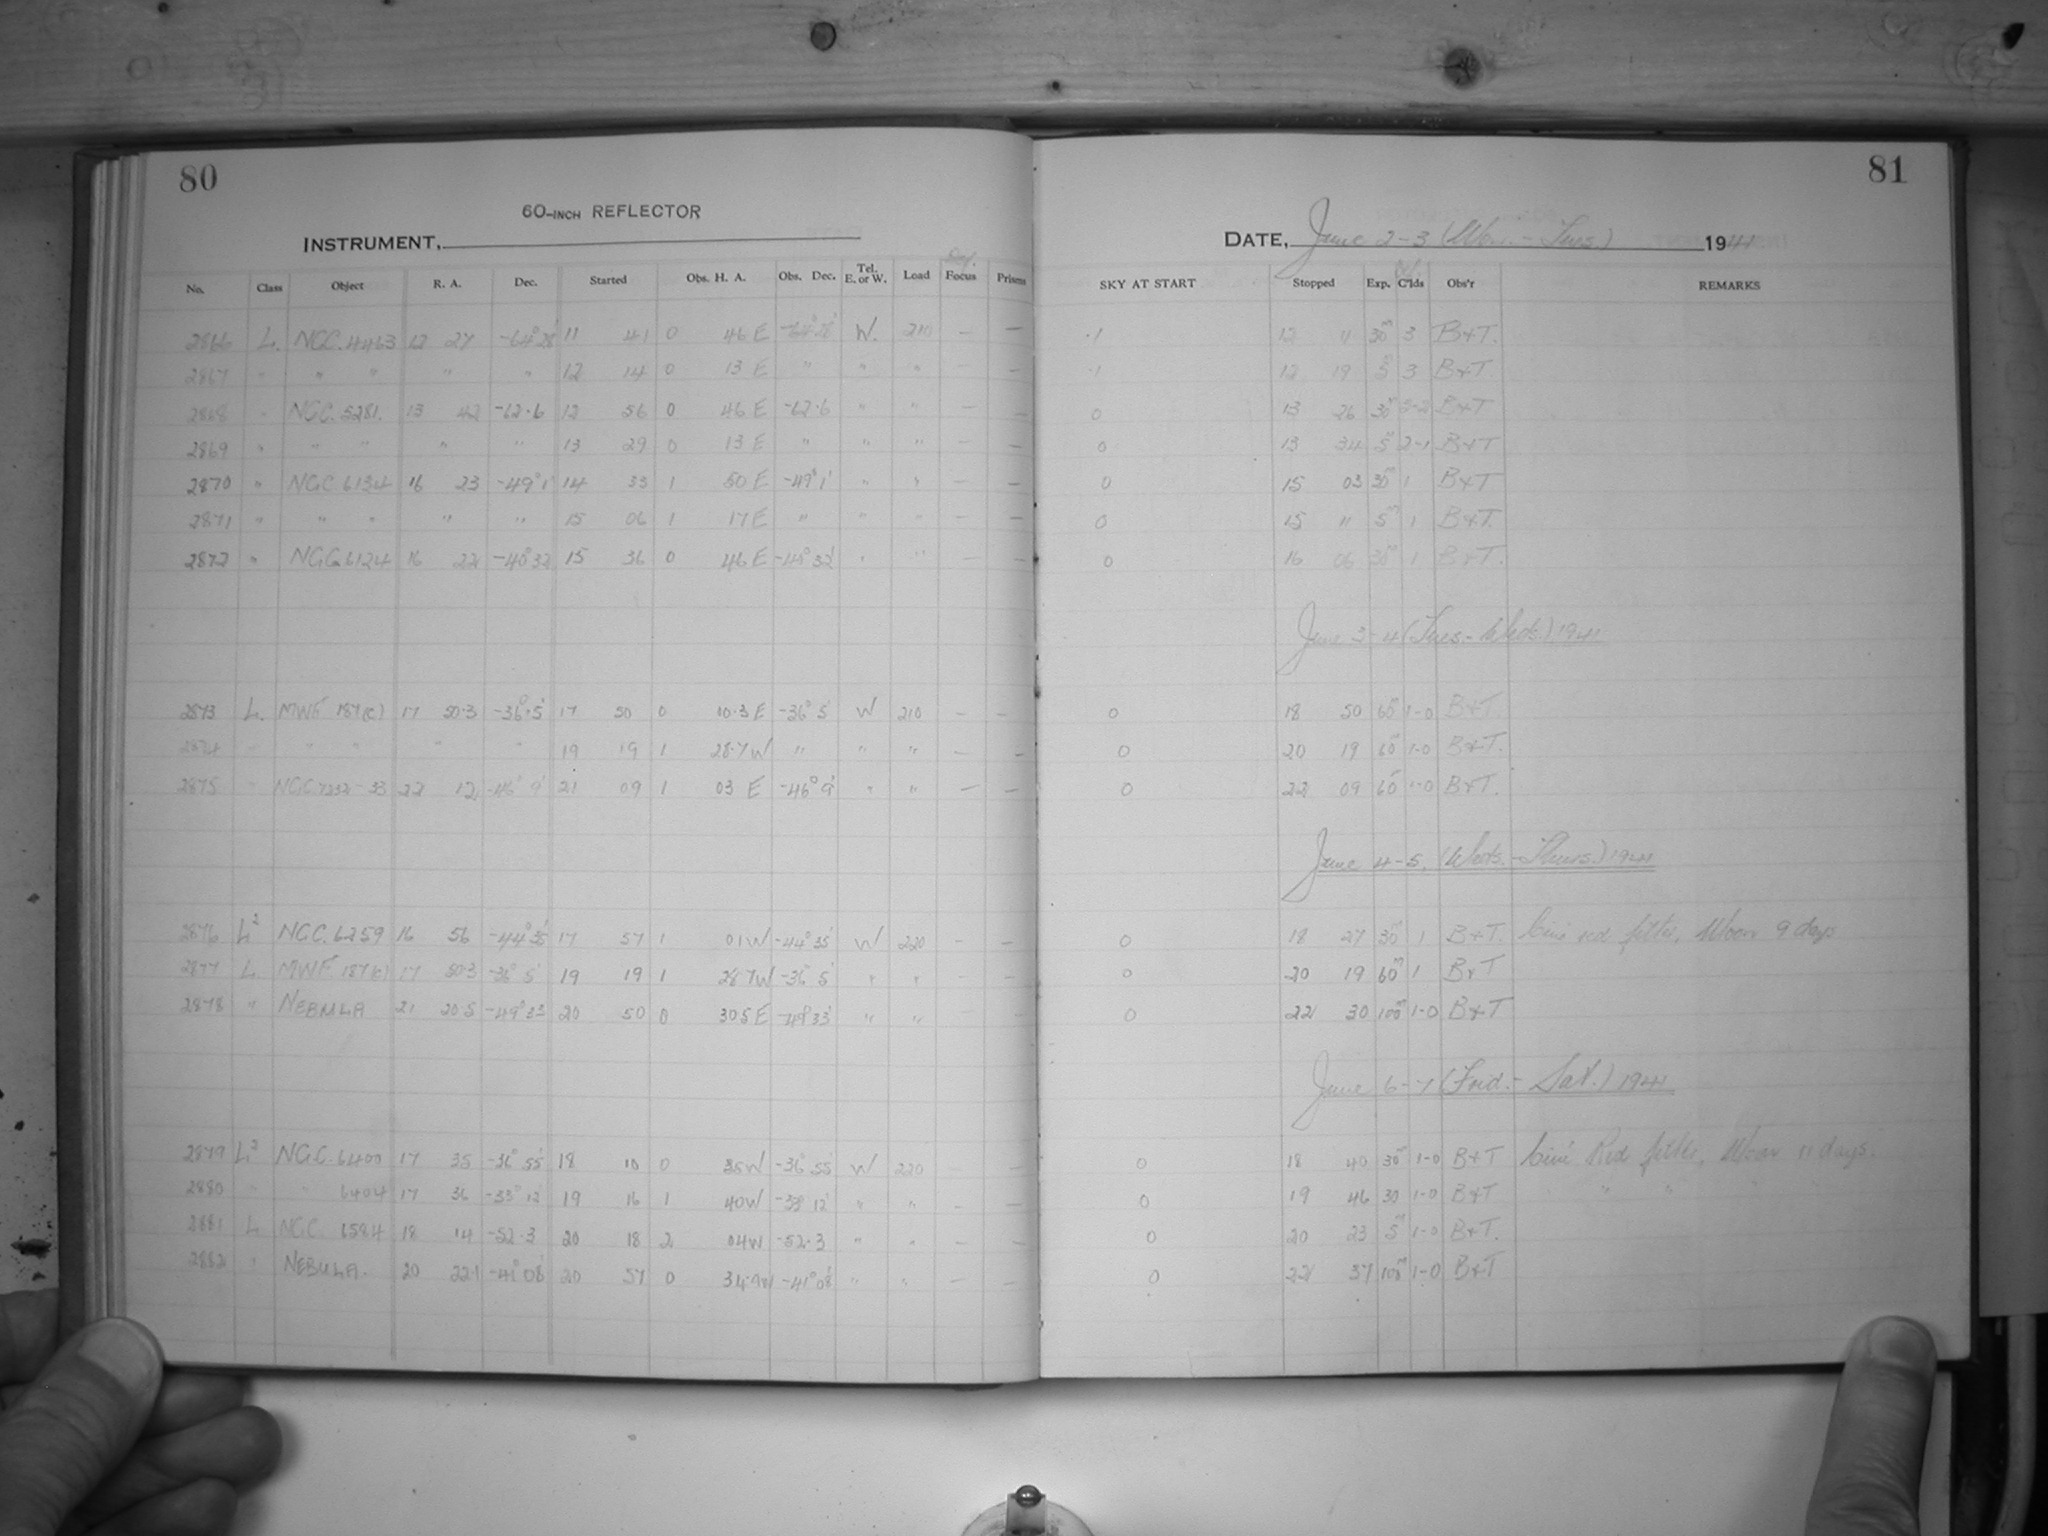 80
60-INCH REFLECTOR
INSTRUMENT,
No. Class Object R. A. Dec. Started Obs. H. A. Obs. Dec. Tel. E. or W. Load Focus Prisms
2866 L. NGC. 4463 12 27 -64°28' 11 41 0 46 E -64°28' W. 210 — —
2867 " " " " " 12 14 0 13 E " " " — —
2868 " NGC. 5281. 13 42 -62.6 12 56 0 46 E -62.6 " " — —
2869 " " " " " 13 29 0 13 E " " " — —
2870 " NGC 6134 16 23 -49°1' 14 33 1 50 E -49°1' " " — —
2871 " " " " " 15 06 1 17 E " " " — —
2872 " NGC 6124 16 22 -40°32' 15 36 0 46 E -40°32' " " — —
2873 L. MWF 187(c) 17 50.3 -36°5' 17 50 0 10.3 E -36°5' W 210 — —
2874 " " " " " 19 19 1 28.7 W " " " — —
2875 " NGC 7232-33 22 12 -46°9' 21 09 1 03 E -46°9' " " — —
2876 L² NGC. 6259 16 56 -44°35' 17 57 1 01 W -44°35' W 220 — —
2877 L. MWF 187(c) 17 50.3 -36°5' 19 19 1 28.7 W -36°5' " " — —
2878 " NEBULA 21 20.5 -49°33' 20 50 0 30.5 E -49°33' " " —
2879 L² NGC. 6400 17 35 -36°55' 18 10 0 35 W -36°55' W 220 — —
2880 " " 6404 17 36 -33°12' 19 16 1 40 W -33°12' " " — —
2881 L NGC. 6584 18 14 -52.3 20 18 2 04 W -52.3 " " — —
2882 " NEBULA. 20 22.1 -41°08' 20 57 0 34.9 W -41°08' " " — —
81
DATE, June 2-3 (Mon.-Tues.) 1941
SKY AT START Stopped Exp. C'lds Obs'r REMARKS
.1 12 11 30ᵐ 3 B+T.
.1 12 19 5ᵐ 3 B+T
0 13 26 30ᵐ 3-2 B+T
0 13 34 5ᵐ 2-1 B+T
0 15 03 30ᵐ 1 B+T
0 15 11 5ᵐ 1 B+T.
0 16 06 30ᵐ 1 B+T.
June 3-4 (Tues.-Weds.) 1941
0 18 50 60ᵐ 1-0 B+T.
0 20 19 60ᵐ 1-0 B+T.
0 22 09 60ᵐ 1-0 B+T.
June 4-5. (Weds.-Thurs.) 1941
0 18 27 30ᵐ 1 B+T. red filter, Moon 9 days
0 20 19 60ᵐ 1 B+T
0 22 30 100ᵐ 1-0 B+T
June 6-7 (Frid.-Sat.) 1941
0 18 40 30ᵐ 1-0 B+T Red filter, Moon 11 days.
0 19 46 30 1-0 B+T " " " "
0 20 23 5ᵐ 1-0 B+T.
0 22 37 100ᵐ 1-0 B+T